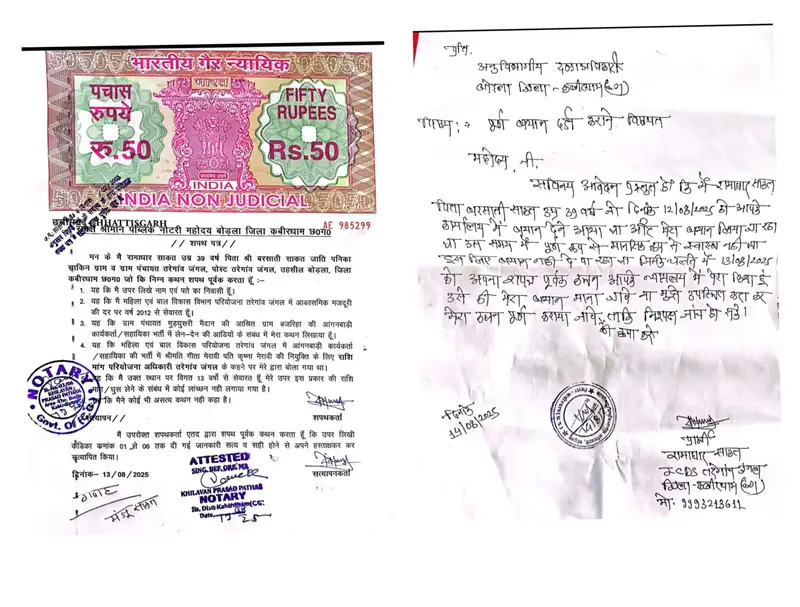 भारतीय गैर न्यायिक
भारत
पचास
रुपये
रु.50
FIFTY
RUPEES
Rs.50
INDIA
INDIA NON JUDICIAL
छत्तीसगढ़ CHHATTISGARH
AE 985299
श्रीमान पब्लिक नोटरी महोदय बोड़ला जिला कबीरधाम छ0ग0
// शपथ पत्र //
मन के मै रामाधार साकत उम्र 39 वर्ष पिता श्री बरसाती साकत जाति पनिका
साकिन ग्राम व ग्राम पंचायत तरेगांव जंगल, पोस्ट तरेगांव जंगल, तहसील बोड़ला, जिला
कबीरधाम छ0ग0 जो कि निम्न कथन शपथ पूर्वक करता हूँ :-
1. यह कि मै उपर लिखे नाम एवं पते का निवासी हूँ।
2. यह कि मै महिला एवं बाल विकास विभाग परियोजना तरेगांव जंगल में आकास्मिक मजदूरी
की दर पर वर्ष 2012 से सेवारत हूँ।
3. यह कि ग्राम पंचायत मुड़घुसरी मैदान की आश्रित ग्राम बजरिहा की आंगनबाड़ी
कार्यकर्ता/सहायिका भर्ती में लेन-देन की आडियो के संबंध में मेरा कथन लिखाया हूँ।
4. यह कि महिला एवं बाल विकास परियोजना तरेगांव जंगल में आंगनबाड़ी कार्यकर्ता
/सहायिका की भर्ती में श्रीमति गीता मेरावी पति कृष्णा मेरावी की नियुक्ति के लिए राशि
मांग परियोजना अधिकारी तरेगांव जंगल के कहने पर मेरे द्वारा बोला गया था।
कि मै उक्त स्थान पर विगत 13 वर्ष से सेवारत हूँ मेरे उपर इस प्रकार की राशि
/घुस लेने के संबंध में कोई लांछन नही लगाया गया है।
कि मैने कोई भी असत्य कथन नही कहा है।
सत्यापन//
शपथकर्ता
मैं उपरोक्त शपथकर्ता एतद द्वारा शपथ पूर्वक कथन करता हूँ कि उपर लिखी
कंडिका कमांक 01 से 06 तक दी गई जानकारी सत्य व सही होने से अपने हस्ताक्षर कर
सत्यापित किया।
दिनांक- 13/08/2025
सत्यापनकर्ता
NOTARY
KHILAVAN
PRASAD PATHAK
Govt. Of
ATTESTED
KHILAVAN PRASAD PATHAK
NOTARY
Date
गवाह
मंजू साकत
प्रति,
अनुविभागीय दण्डाधिकारी
बोड़ला जिला - कबीरधाम (छ.ग)
विषय :- पूर्ण बयान दर्ज कराने विषयत
महोदय जी
सविनय आवेदन प्रस्तुत है कि मैं रामाधार साकत
पिता बरसाती साकत उम्र 39 वर्ष जो दिनांक 12/08/2025 को आपके
कार्यालय में बयान देने आया था और मेरा बयान लिया जा रहा
था उस समय मैं पूर्ण रूप से मानसिक रूप से स्वास्थ नहीं था
इस लिए बयान नहीं दे पा रहा था जिसके चलते मैं 13/08/2025
को अपना शपथ पूर्वक कथन आपके न्यायालय में पेश किया हूं
उसे ही मेरा बयान माना जावे या मुझे उपस्थित करा कर
मेरा कथन पूर्ण कराया जावे, ताकि निष्पक्ष जांच हो सके।
की कृपा करें
दिनांक
14/08/2025
प्रार्थी
रामाधार साकत
ICDS तरेगांव जंगल
जिला - कबीरधाम (छ.ग)
मो. 9993213611